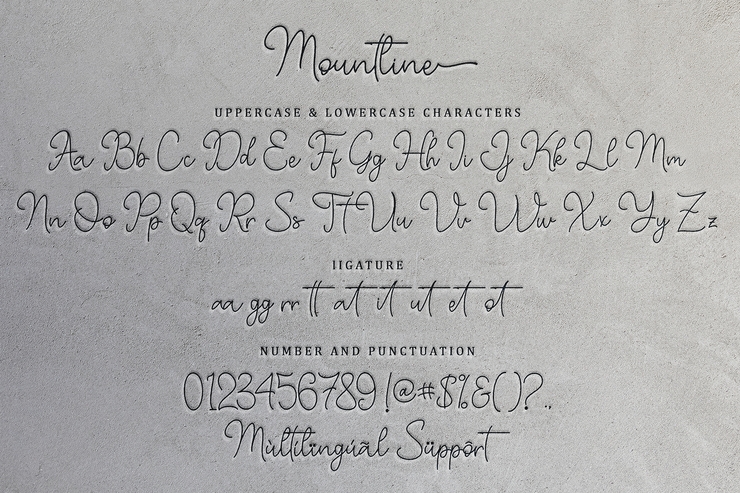 Mountline
UPPERCASE & LOWERCASE CHARACTERS
Aa Bb Cc Dd Ee Ff Gg Hh Ii Jj Kk Ll Mm
Nn Oo Pp Qq Rr Ss Tt Uu Vv Ww Xx Yy Zz
lIGATURE
aa gg rr tt at it ut et ot
NUMBER AND PUNCTUATION
0123456789!@#$%&()?.,
Mùltílïngúãl Süppôrt